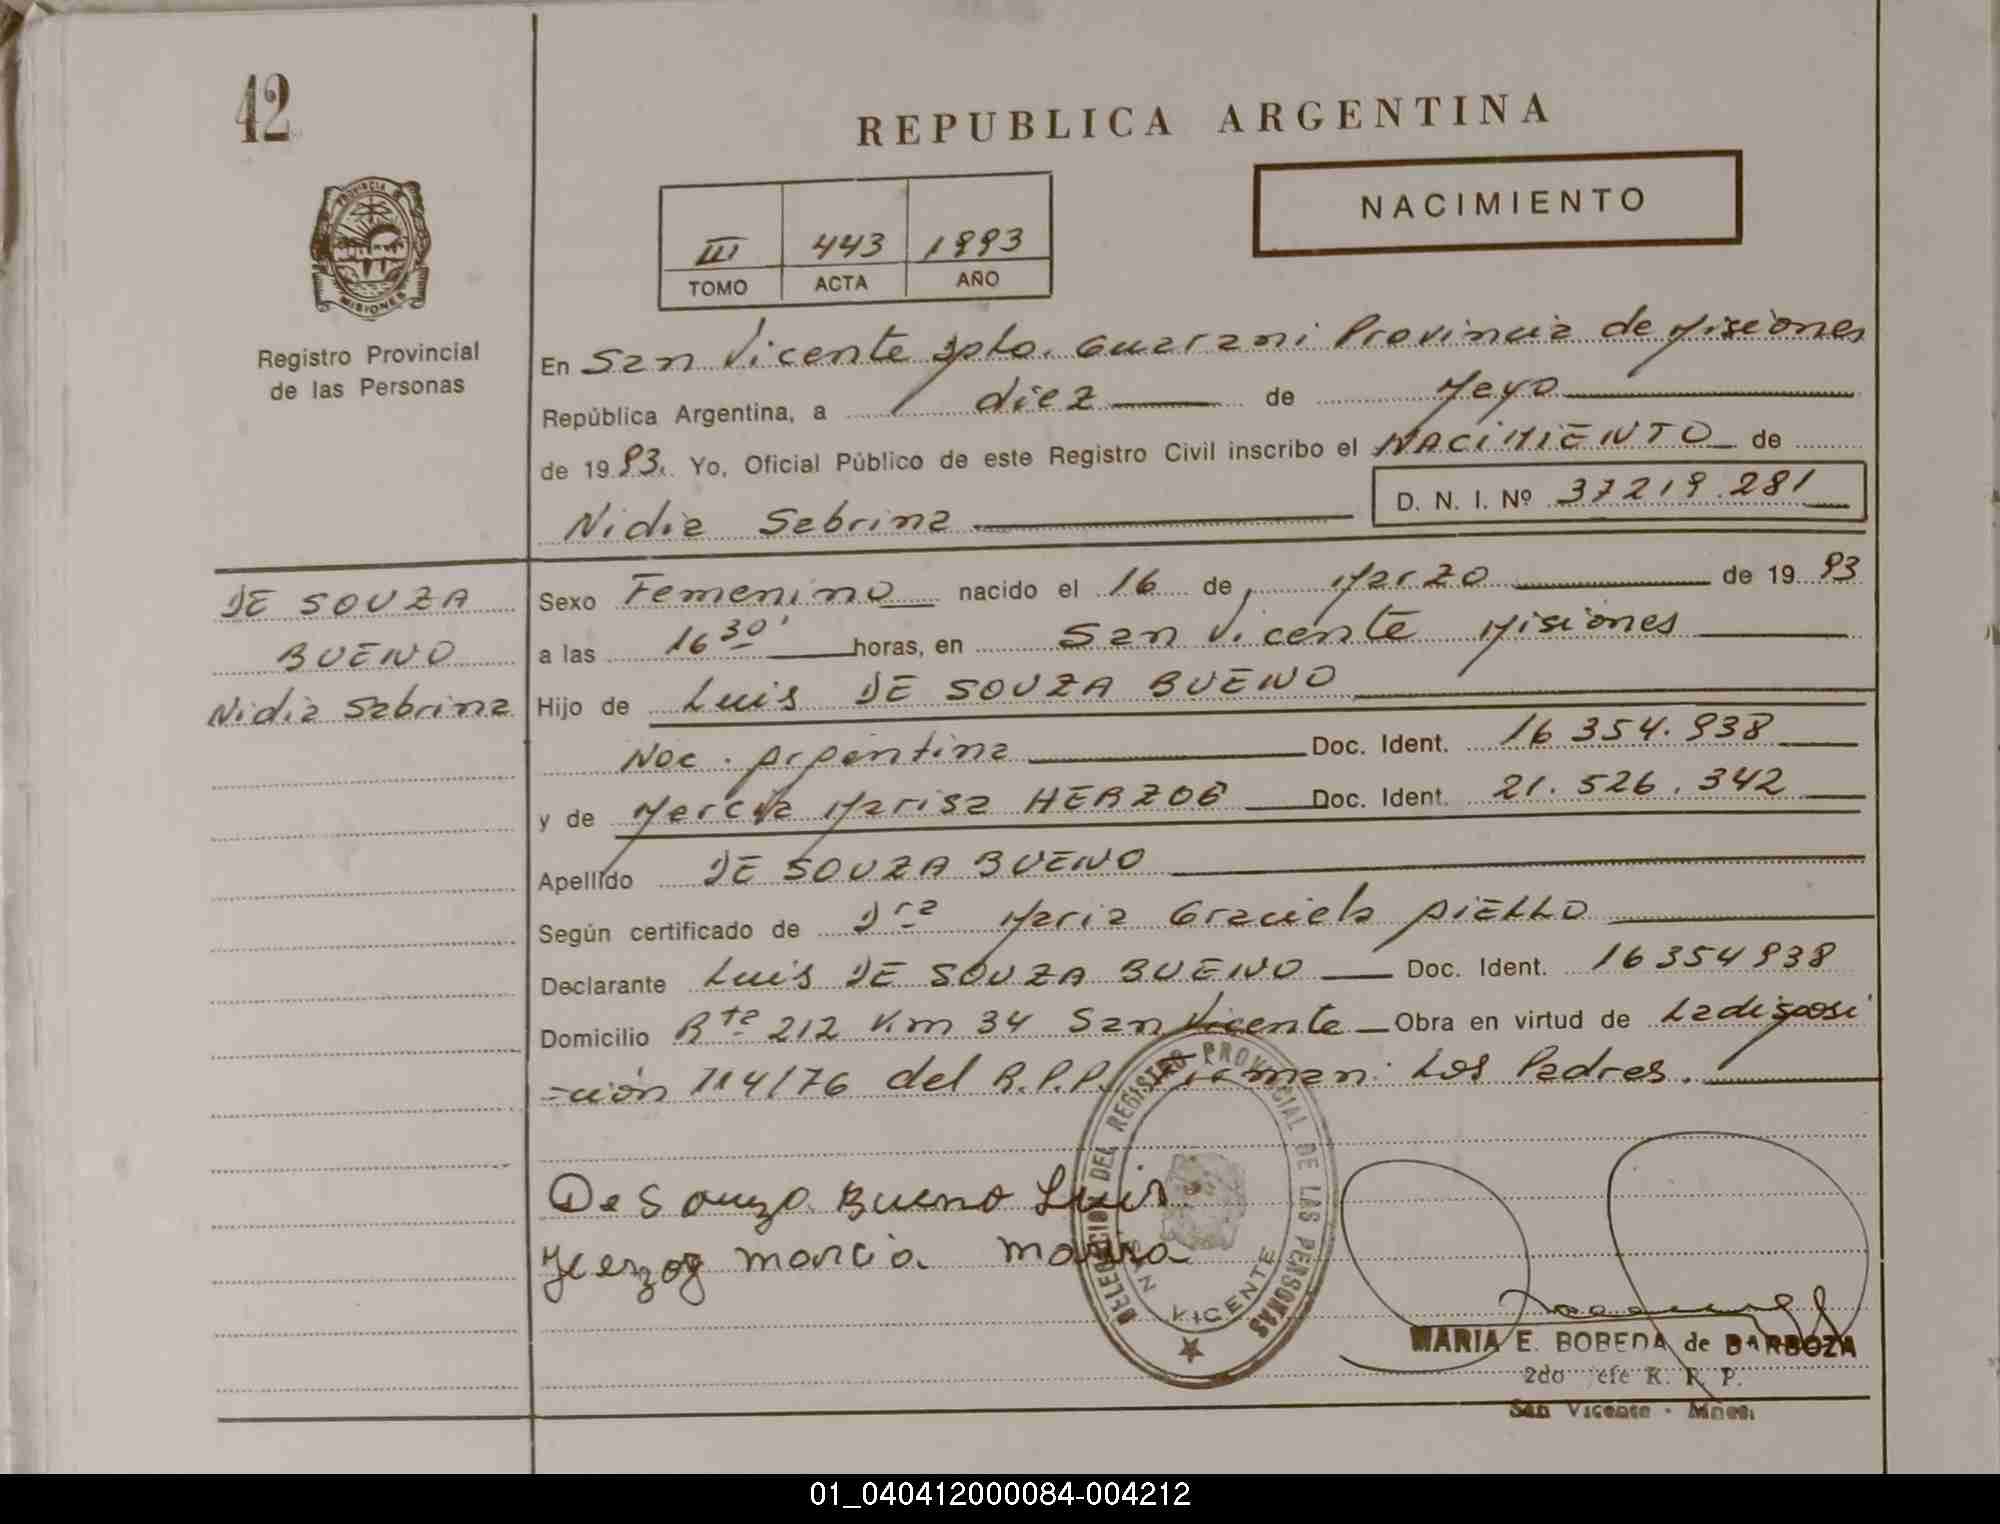 42
REPUBLICA ARGENTINA
NACIMIENTO
III 443 1993
TOMO ACTA AÑO
PROVINCIA DE
MISIONES
Registro Provincial
de las Personas
En San Vicente Dpto. Guarani Provincia de Misiones
República Argentina, a diez de Mayo
de 1993. Yo, Oficial Público de este Registro Civil inscribo el NACIMIENTO de
Nidia Sabrina D. N. I. Nº 37219.281
DE SOUZA
BUENO
Nidia Sabrina
Sexo Femenino nacido el 16 de Marzo de 1993
a las 16 30' horas, en San Vicente Misiones
Hijo de Luis DE SOUZA BUENO
Nac. Argentina Doc. Ident. 16 354.938
y de Marcia Marisa HERZOG Doc. Ident. 21.526.342
Apellido DE SOUZA BUENO
Según certificado de Dra Maria Graciela AIELLO
Declarante Luis DE SOUZA BUENO Doc. Ident. 16354938
Domicilio Rta 212 Km 34 San Vicente Obra en virtud de La disposi
=ción 114/76 del R.P.P. Firman: Los Padres.
De Souza Bueno Luis
Herzog Marcia Marisa
DELEGACION DEL REGISTRO PROVINCIAL DE LAS PERSONAS
SAN VICENTE
MARIA E. BOBEDA de BARBOZA
2do Jefe R. P. P.
San Vicente - Mnes.
01_040412000084-004212